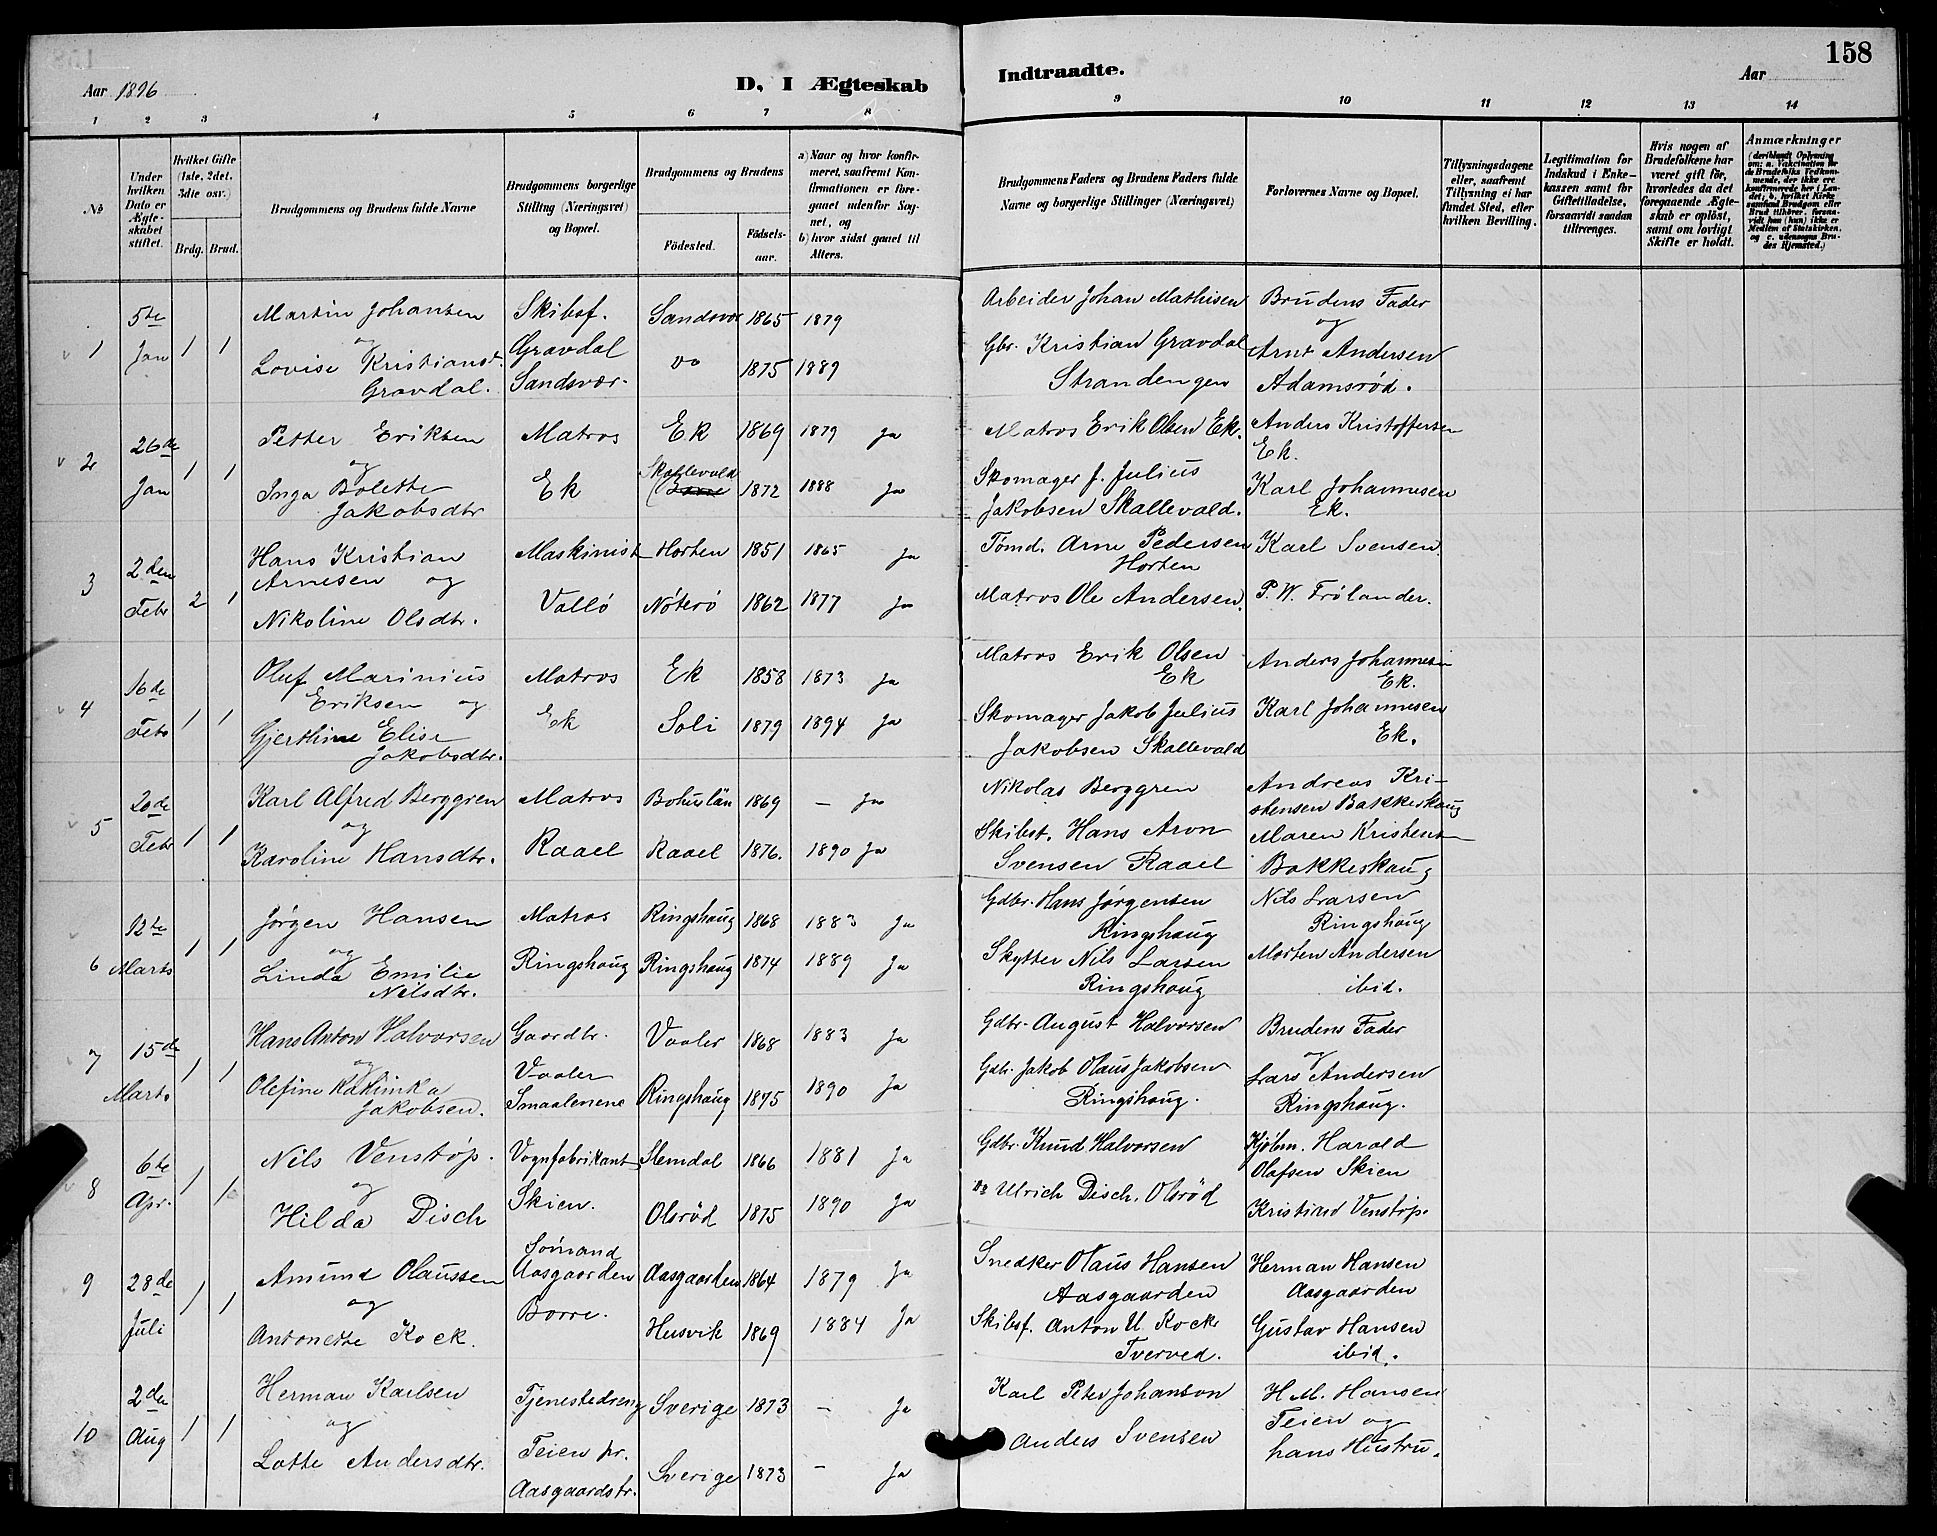 158
Aar 1896
D, I Ægteskab Indtraadte.
Aar
1 2 3 4 5 6 7 8 9 10 11 12 13 14
No
Under hvilken Dato er Ægteskabet stiftet.
Hvilket Gifte (1ste, 2det, 3die osv.)
Brdg. Brud.
Brudgommens og Brudens fulde Navne
Brudgommens borgerlige Stilling (Næringsvei) og Bopæl.
Brudgommens og Brudens
Fødested.
Fødselsaar.
a) Naar og hvor konfirmeret, saafremt Konfirmationen er foregaaet udenfor Sognet, og
b) hvor sidst gaaet til Alters.
Brudgommens Faders og Brudens Faders fulde Navne og borgerlige Stillinger (Næringsvei)
Forlovernes Navne og Bopæl.
Tillysningsdagene eller, saafremt Tillysning ei har fundet Sted, efter hvilken Bevilling.
Legitimation for Indskud i Enkekassen samt for Giftetilladelse, forsaavidt saadan tiltrænges.
Hvis nogen af Brudefolkene har været gift før, hvorledes da det foregaaende Ægteskab er opløst, samt om lovligt Skifte er holdt.
Anmærkninger
(deriblandt Oplysning om: a. Vaccination for de Brudefolks Vedkommende, der ikke ere konfirmerede her i Landet; b. hvilket Kirkesamfund Brudgom eller Brud tilhører, forsaavidt han (hun) ikke er Medlem af Statskirken, og c. udensogns Brudes Hjemsted.)
1 5te Jan 1 1
Martin Johansen og
Lovise Kristiansd. Gravdal.
Skibsf.
Gravdal
Sandsvær.
Sandsvær 1865 1879
do 1875 1889
Arbeider Johan Mathisen
Gbr. Kristian Gravdal
Strandengen
Brudens Fader
og
Arnt Andersen
Adamsrød.
2 26de Jan 1 1
Petter Eriksen
og
Inga Bolette
Jakobsdtr
Matros
Ek
Ek 1869 1879 Ja
Skallevold 1872 1888 Ja
Matros Erik Olsen Ek.
Skomager J. Julius
Jakobsen Skallevald.
Anders Kristoffersen
Ek.
Karl Johannesen
Ek.
3 2den Febr 2 1
Hans Kristian
Arnesen og
Nikoline Olsdtr.
Maskinist
Vallö
Horten 1851 1865 Ja
Nöterö 1862 1877 Ja
Tömd. Arne Pedersen
Horten
Matros Ole Andersen.
Karl Svensen
P. W. Frölander.
4 16de Febr 1 1
Oluf Marinius
Eriksen og
Gjerthine Elise
Jakobsdtr.
Matros
Ek
Ek 1858 1873 Ja
Soli 1879 1894 Ja
Matros Erik Olsen
Ek
Skomager Jakob Julius
Jakobsen Skallevald
Anders Johannesen
Ek.
Karl Johannesen
Ek.
5 20de Febr 1 1
Karl Alfred Berggren
og
Karoline Hansdtr.
Matros
Raael
Bohuslän 1869 — Ja
Raael 1876. 1890 Ja
Nikolas Berggren
Skibst. Hans Aron
Svensen Raael
Andreas Kristensen Bakkeskaug
Maren Kristensen
Bakkeskaug
6 12te Marts 1 1
Jørgen Hansen
og
Linda Emilie
Nilsdtr.
Matros
Ringshaug
Ringshaug 1868 1883 Ja
Ringshaug 1874 1889 Ja
Gdbr. Hans Jørgensen
Ringshaug
Skytter Nils Larsen
Ringshaug
Nils Larsen
Ringshaug
Morten Andersen
ibid.
7 15de Marts 1 1
Hans Anton Halvorsen
og
Olefine Kathinka
Jakobsen.
Gaardbr.
Vaaler
Smaalenene
Vaaler 1868 1883 Ja
Ringshaug 1875 1890 Ja
Gdbr. August Halvorsen
Gdb. Jakob Olaus Jakobsen
Ringshaug.
Brudens Fader
og
Lars Andersen
Ringshaug.
8 6te Apr. 1 1
Nils Venstøp.
og
Hilda Disch
Vognfabrikant
Skien.
Slemdal 1866 1881 Ja
Olsröd 1875 1890 Ja
Gdbr. Knud Halvorsen
do Ulrich Disch. Olsröd
Kjöbm. Harald
Olafsen Skien
Kristian Venstöp.
9 28de Juli 1 1
Amund Olaussen
og
Antonette Kock.
Sömand
Aasgaarden
Borre.
Aasgaarden 1864 1879 Ja
Husvik 1869 1884 Ja
Snedker Olaus Hansen
Aasgaarden
Skibsf. Anton U. Kock
Tverved.
Herman Hansen
Aasgaarden
Gustav Hansen
ibid.
10 2den Aug 1 1
Herman Karlsen
og
Lotte Andersdtr.
Tjenestedreng
Teien pr.
Aasgaardstr.
Sverige 1873 — Ja
Sverige 1873 — Ja
Karl Peter Johanson
Anders Svensen
H. M. Hansen
Teien og
hans Hustru.